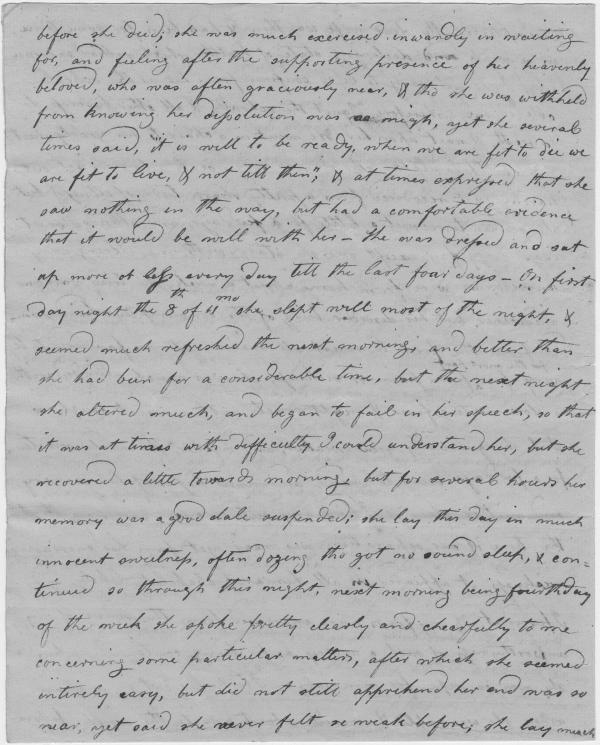 before she died; she was much exercised inwardly in waiting
for, and feeling after the supporting presence of her heavenly
beloved, who was often graciously near, & tho she was withheld
from knowing her dissolution was so nigh, yet she several
times said, "it is well to be ready, when we are fit to die we
are fit to live, & not till then"; & at times expressed that she
saw nothing in the way, but had a comfortable evidence
that it would be well with her – She was dressed and sat
up more or less every day till the last four days – On first
day night the 8th of 11mo she slept well most of the night, &
seemed much refreshed the next morning, and better than
she had been for a considerable time, but the next night
she altered much, and began to fail in her speech, so that
it was at times with difficulty I could understand her, but she
recovered a little towards morning, but for several hours her
memory was a good dale suspended; she lay this day in much
innocent sweetness, often dozing tho got no sound sleep, & con=
tinued so through this night, next morning being fourthday
of the week she spoke pretty clearly and chearfully to me
concerning some particular matters, after which she seemed
intirely easy, but did not still apprehend her end was so
near, yet said she never felt so weak before; she lay much